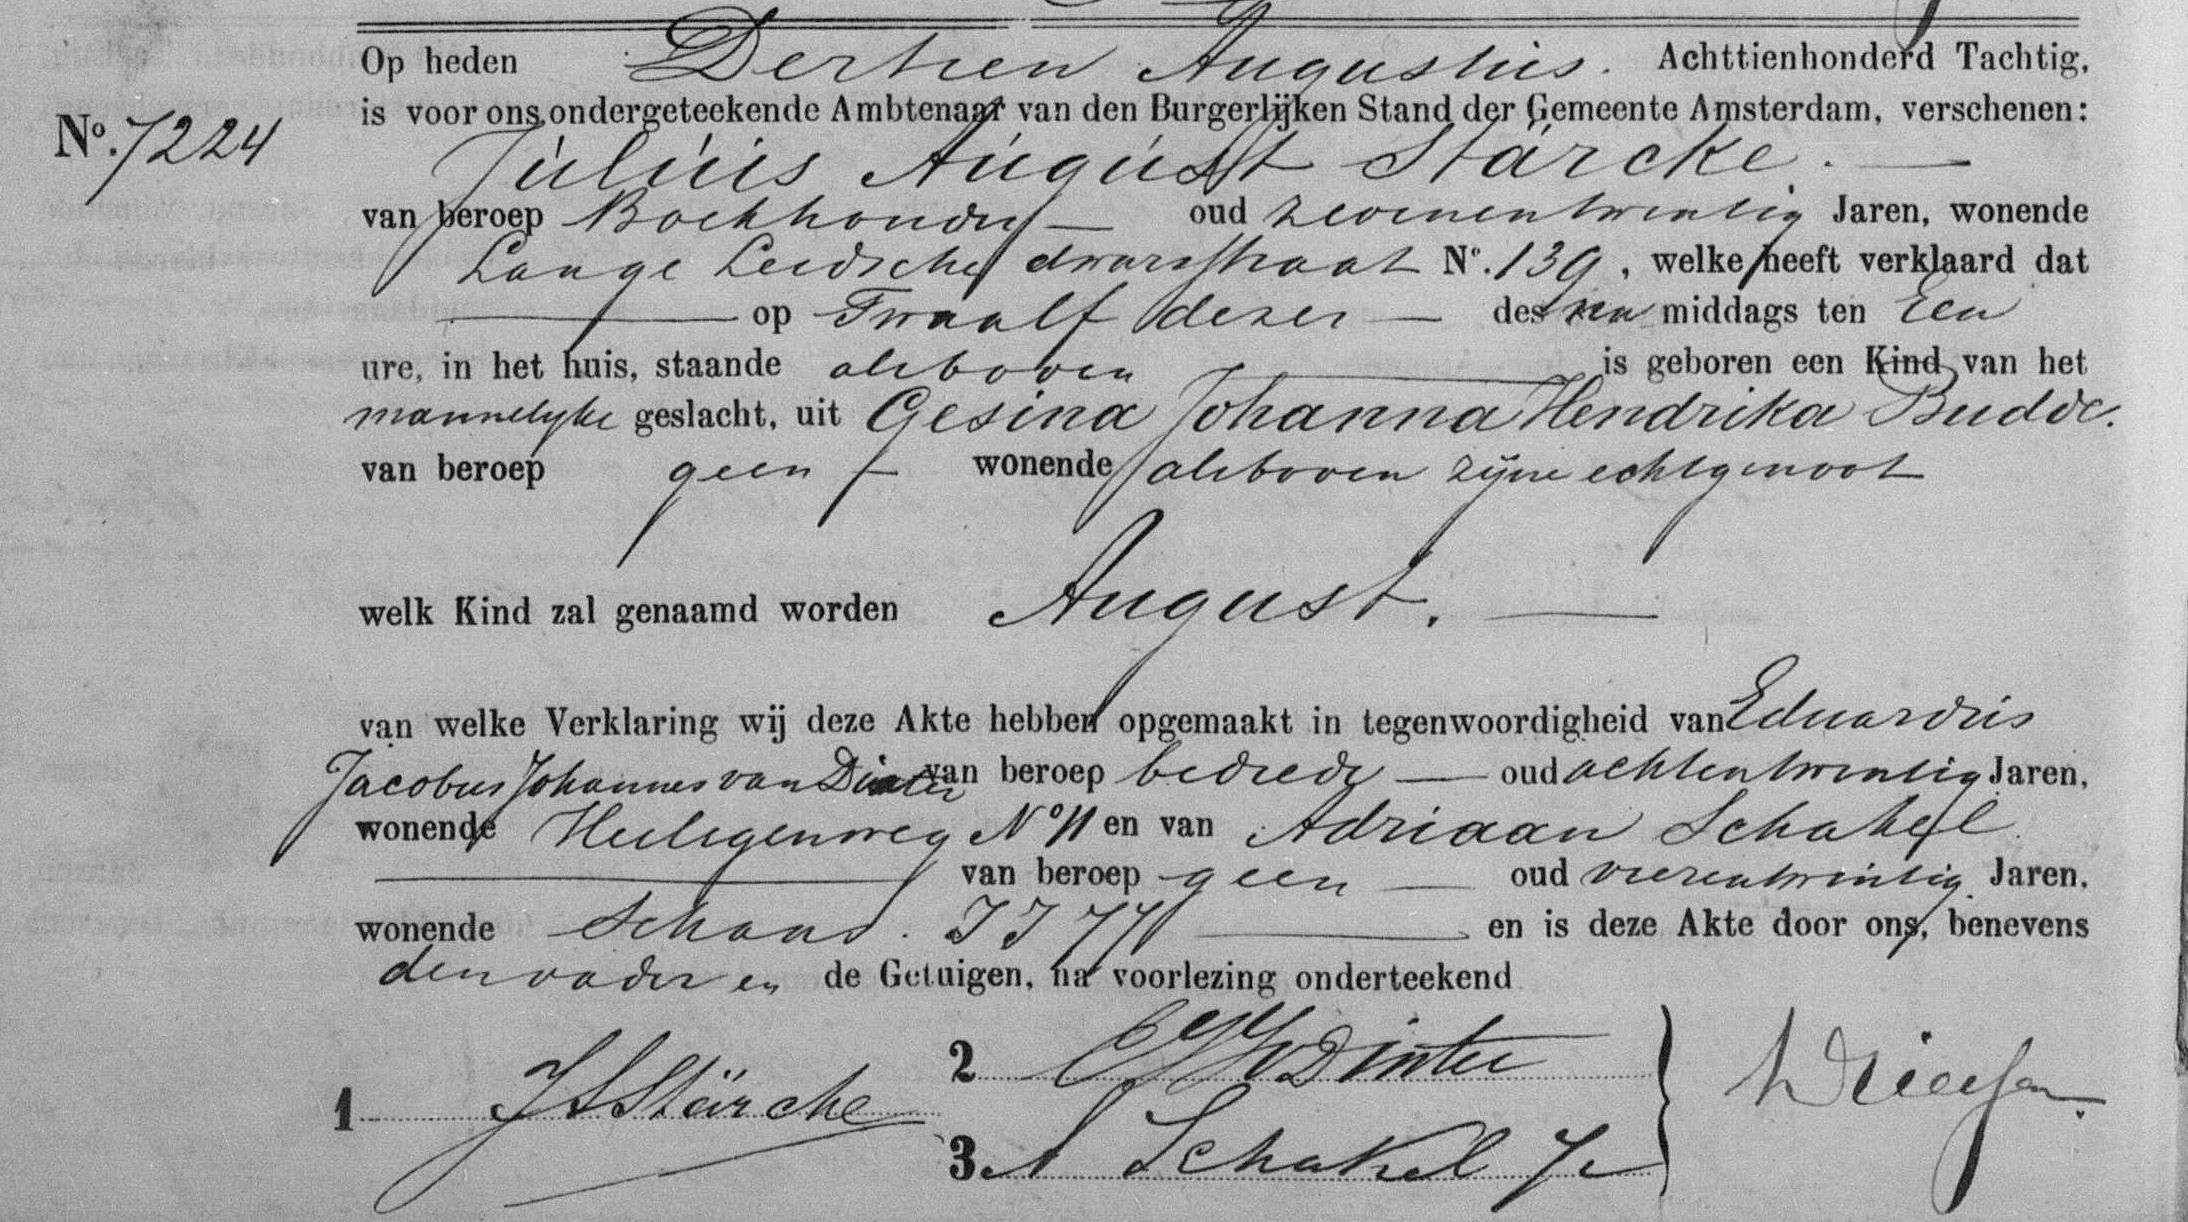 Op heden Dertien Augustus. Achttienhonderd Tachtig,
is voor ons ondergeteekende Ambtenaar van den Burgerlijken Stand der Gemeente Amsterdam, verschenen:
No. 7224
Julius August Stärcke.
van beroep Boekhouder oud zevenentwintig Jaren, wonende
Lange Leidsche dwarsstraat No. 139, welke heeft verklaard dat
op Twaalf dezer des na middags ten Een
ure, in het huis, staande alsboven is geboren een Kind van het
mannelijke geslacht, uit Gesina Johanna Hendrika Budde.
van beroep geen wonende alsboven zijne echtgenoot
welk Kind zal genaamd worden August.
van welke Verklaring wij deze Akte hebben opgemaakt in tegenwoordigheid van Eduardus
Jacobus Johannes van Dinter van beroep bediede oud achtentwintig Jaren,
wonende Heiligenweg No 11 en van Adriaan Schakel
van beroep geen oud vierentwintig Jaren,
wonende Schans. JJ 77 en is deze Akte door ons, benevens
den vader en de Getuigen, na voorlezing onderteekend
1 JAStärcke
2 vDinter
3 A Schakel Jr